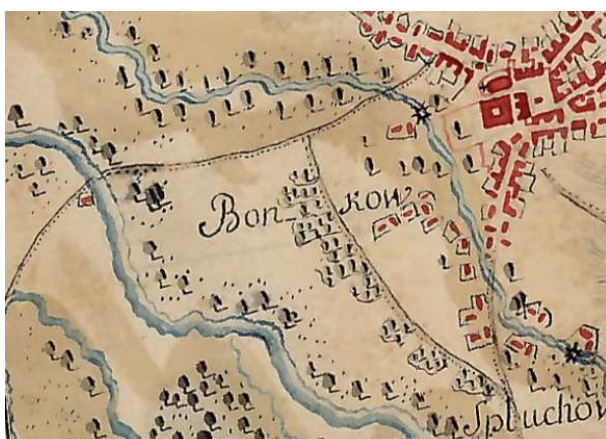 Bonkow
Spluchow